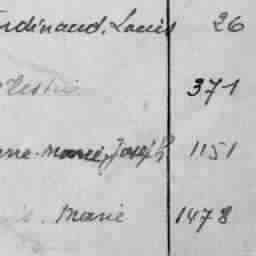 Ferdinand, Louis 26
371
Marie, Joseph 1151
Marie 1478